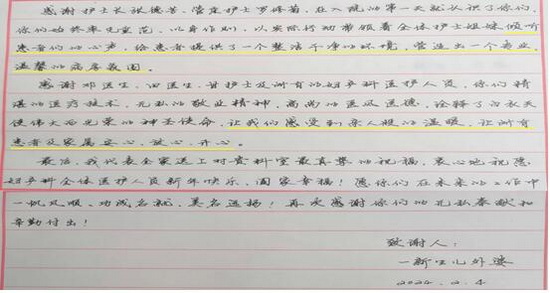 感谢护士长张德芳、管床护士罗婷菊,在入院的第一天就认识了你们,
你们始终率先垂范,以身作则,以实际行动带领着全体护士姐妹倾听
患者们的心声,给患者提供了一个整洁干净的环境,营造出一个专业、
温馨的病房氛围。
感谢邓医生、田医生、甘护士及所有的妇产科医护人员,你们精
湛的医疗技术,无私的敬业精神,高尚的医风医德,诠释了白衣天
使伟大而光荣的神圣使命,让我们感受到亲人般的温暖,让所有
患者及家属安心、放心、开心。
最后,我代表全家送上对贵科室最真挚的祝福,衷心地祝愿
妇产科全体医护人员新年快乐,阖家幸福!愿你们在未来的工作中
一帆风顺、功成名就,美名远扬!再次感谢你们的无私奉献和
辛勤付出!
致谢人:
一新生儿外婆
2024.2.4